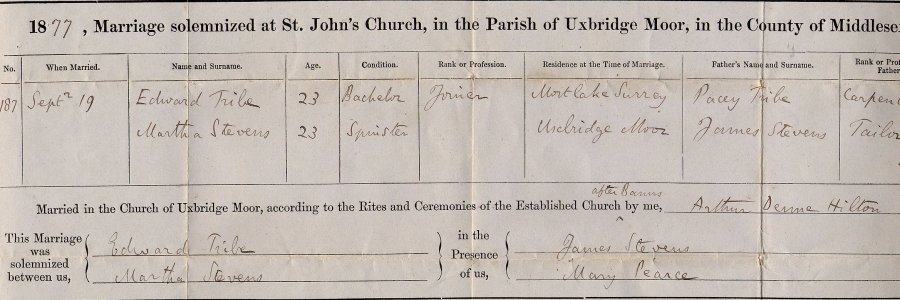 1877, Marriage solemnized at St. John's Church, in the Parish of Uxbridge Moor, in the County of Middlese
No. When Married. Name and Surname. Age. Condition. Rank or Profession. Residence at the Time of Marriage. Father's Name and Surname. Rank or Prof
Father
187 Septr 19 Edward Tribe 23 Bachelor Joiner Mortlake Surrey Pacey Tribe Carpen
Martha Stevens 23 Spinster Uxbridge Moor James Stevens Tailor
after Banns
Married in the Church of Uxbridge Moor, according to the Rites and Ceremonies of the Established Church by me, Arthur Denne Hilton
This Marriage was solemnized between us,
Edward Tribe
Martha Stevens
in the Presence of us,
James Stevens
Mary Pearce